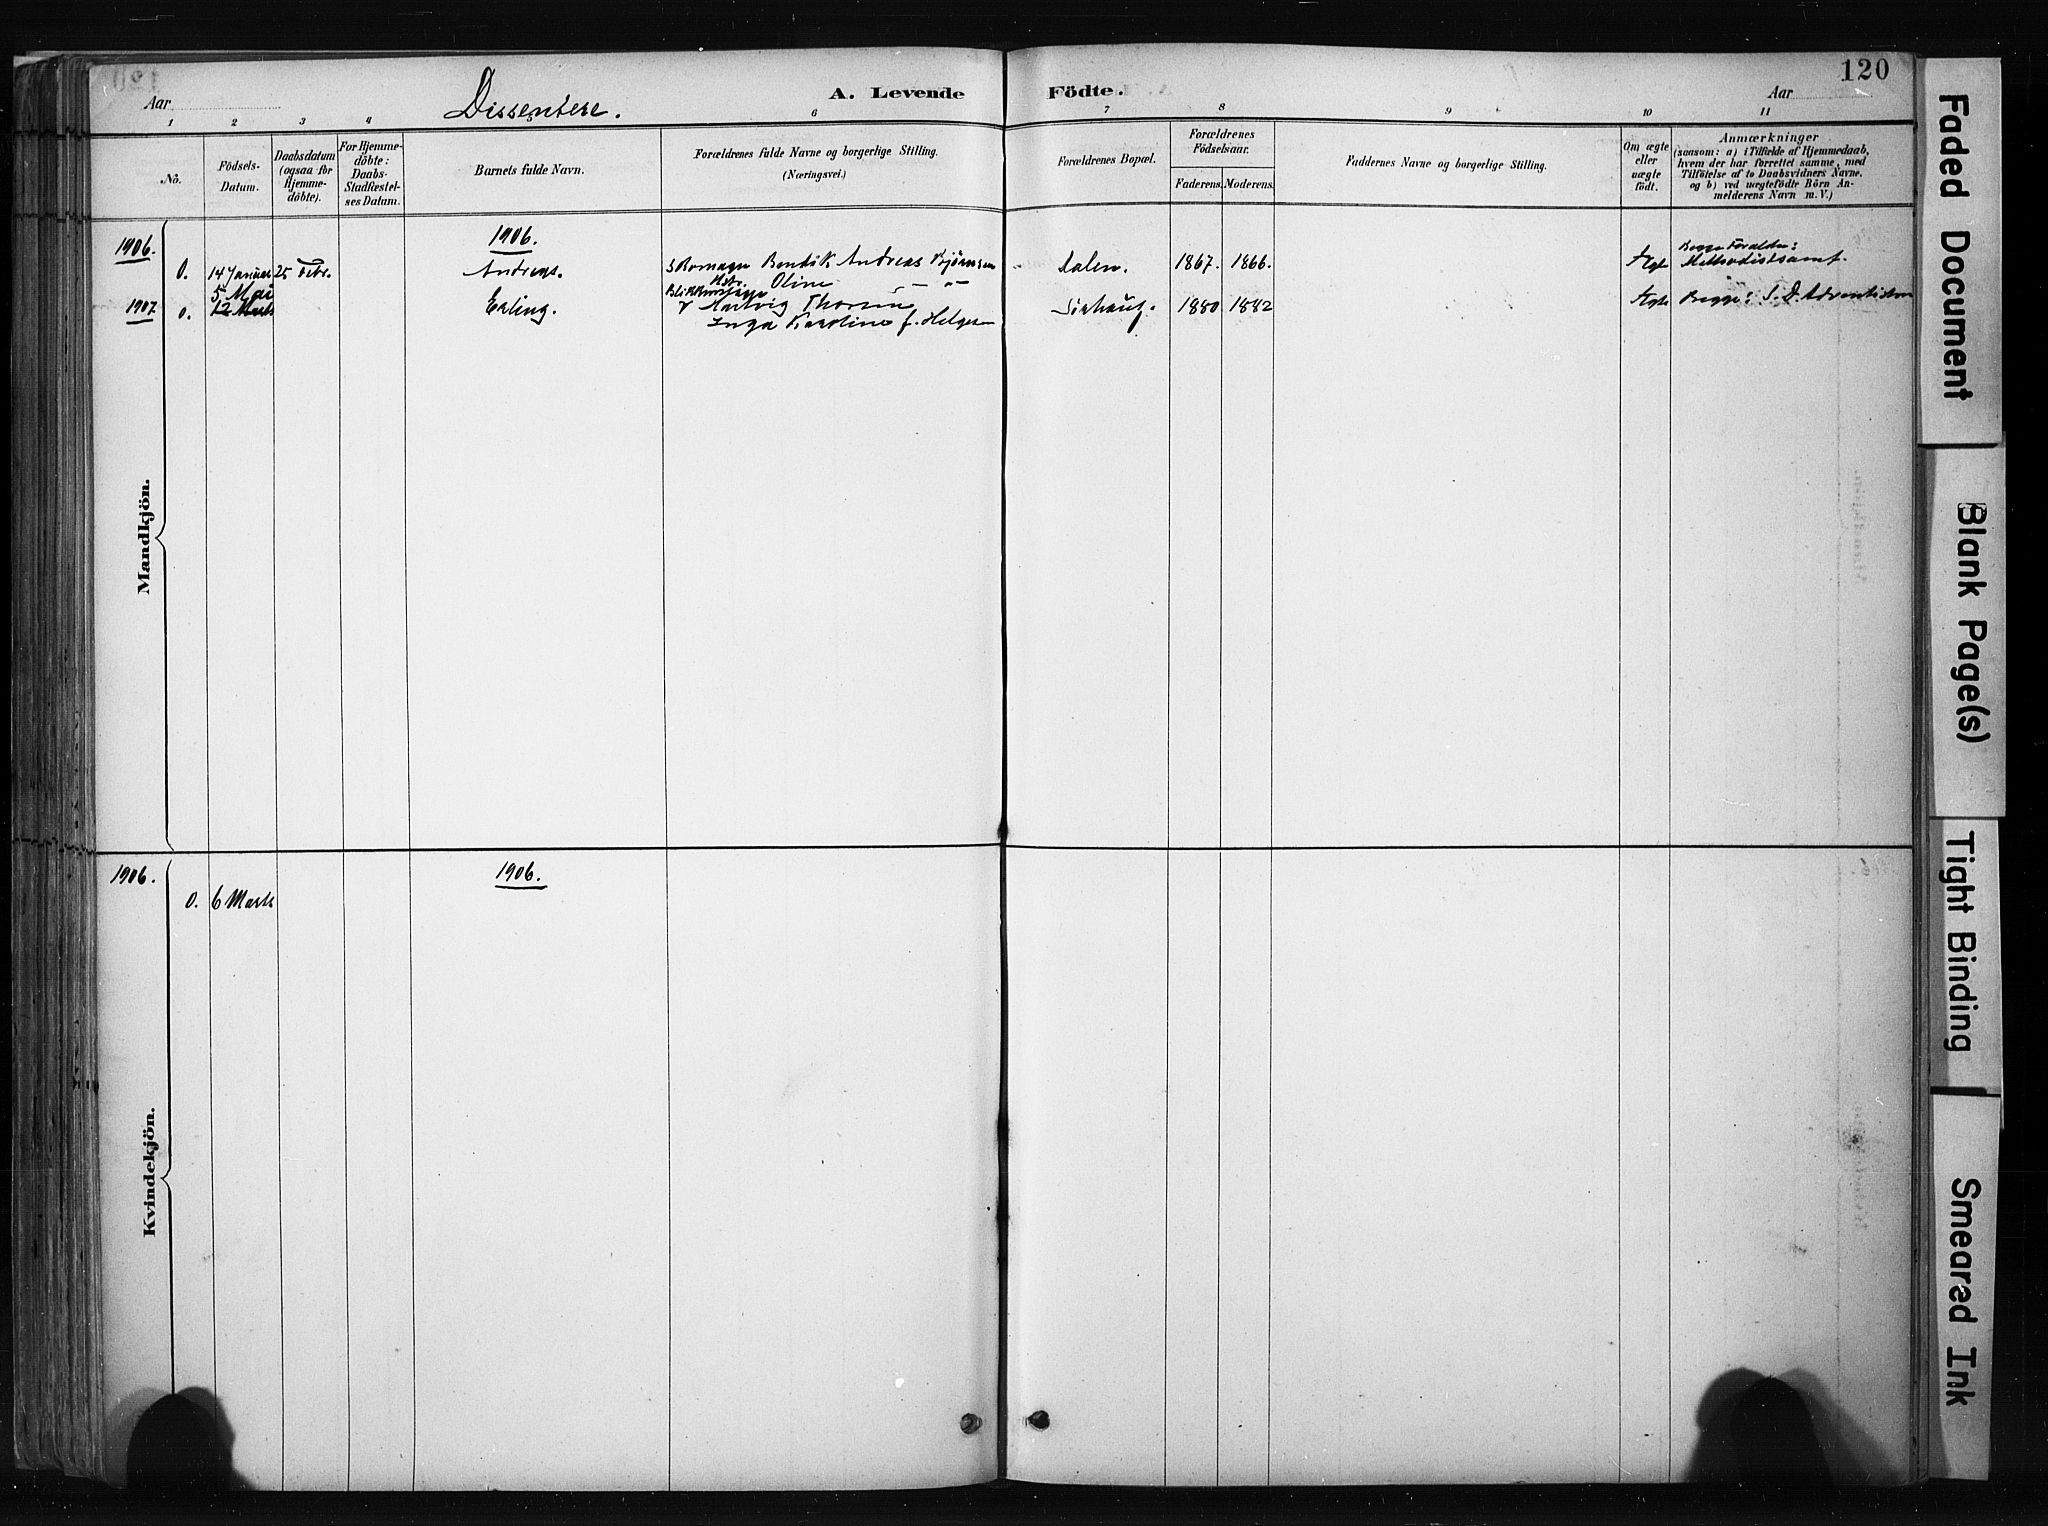 120
Aar
Dissentere.
A. Levende Födte.
Aar
1 2 3 4 5 6 7 8 9 10 11
No.
Födsels-
Datum.
Daabsdatum
(ogsaa for
Hjemme-
döbte).
For Hjemme-
döbte:
Daabs-
Stadfæstel-
ses Datum.
Barnets fulde Navn.
Forældrenes fulde Navne og borgerlige Stilling.
(Næringsvei.)
Forældrenes Bopæl.
Forældrenes
Födselsaar.
Faderens. Moderens.
Faddernes Navne og borgerlige Stilling.
Om ægte
eller
uægte
födt.
Anmærkninger
(saasom: a) i Tilfælde af Hjemmedaab,
hvem der har forrettet samme, med
Tilföielse af to Daabsvidners Navne.
og b) ved uægtefödte Börn An-
melderens Navn m. V.)
1906.
1906.
0. 14 Januar 25 Febr. Andreas. Bendik Andreas Bjørnsen Dalen. 1867. 1866. Ægte Methodistsamf.
Oline — " —
1907. 0. 12 Marts Erling. Hartvig Thorsen 1880 1882 Ægte Begge: S. D. Adventister
5 Mai
Inga Karoline f. Helgesen
Mandkjön.
1906.
1906.
0. 6 Marts
Kvindekjön.
Faded Document
Blank Page(s)
Tight Binding
Smeared Ink